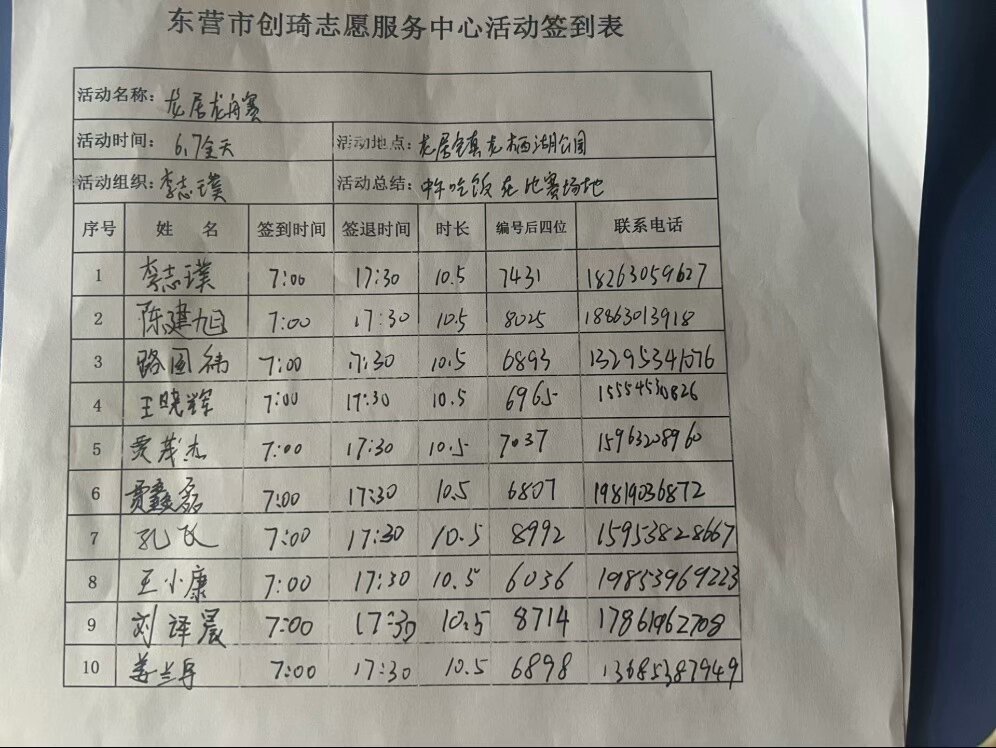 东营市创琦志愿服务中心活动签到表
活动名称：龙居龙舟赛
活动时间：6.7全天 活动地点：龙居镇龙栖湖公园
活动组织：李志璞 活动总结：中午吃饭在比赛场地
序号 姓 名 签到时间 签退时间 时长 编号后四位 联系电话
1 李志璞 7:00 17:30 10.5 7431 18263059627
2 陈建旭 7:00 17:30 10.5 8025 18863013918
3 路国伟 7:00 17:30 10.5 6893 13295341076
4 王晓辉 7:00 17:30 10.5 6965 15554530826
5 贾茂杰 7:00 17:30 10.5 7037 15963208960
6 贾鑫磊 7:00 17:30 10.5 6807 19819036872
7 孔飞 7:00 17:30 10.5 8992 15953828667
8 王小康 7:00 17:30 10.5 6036 19853969223
9 刘译晨 7:00 17:30 10.5 8714 17861962708
10 姜兰 7:00 17:30 10.5 6898 13685387949